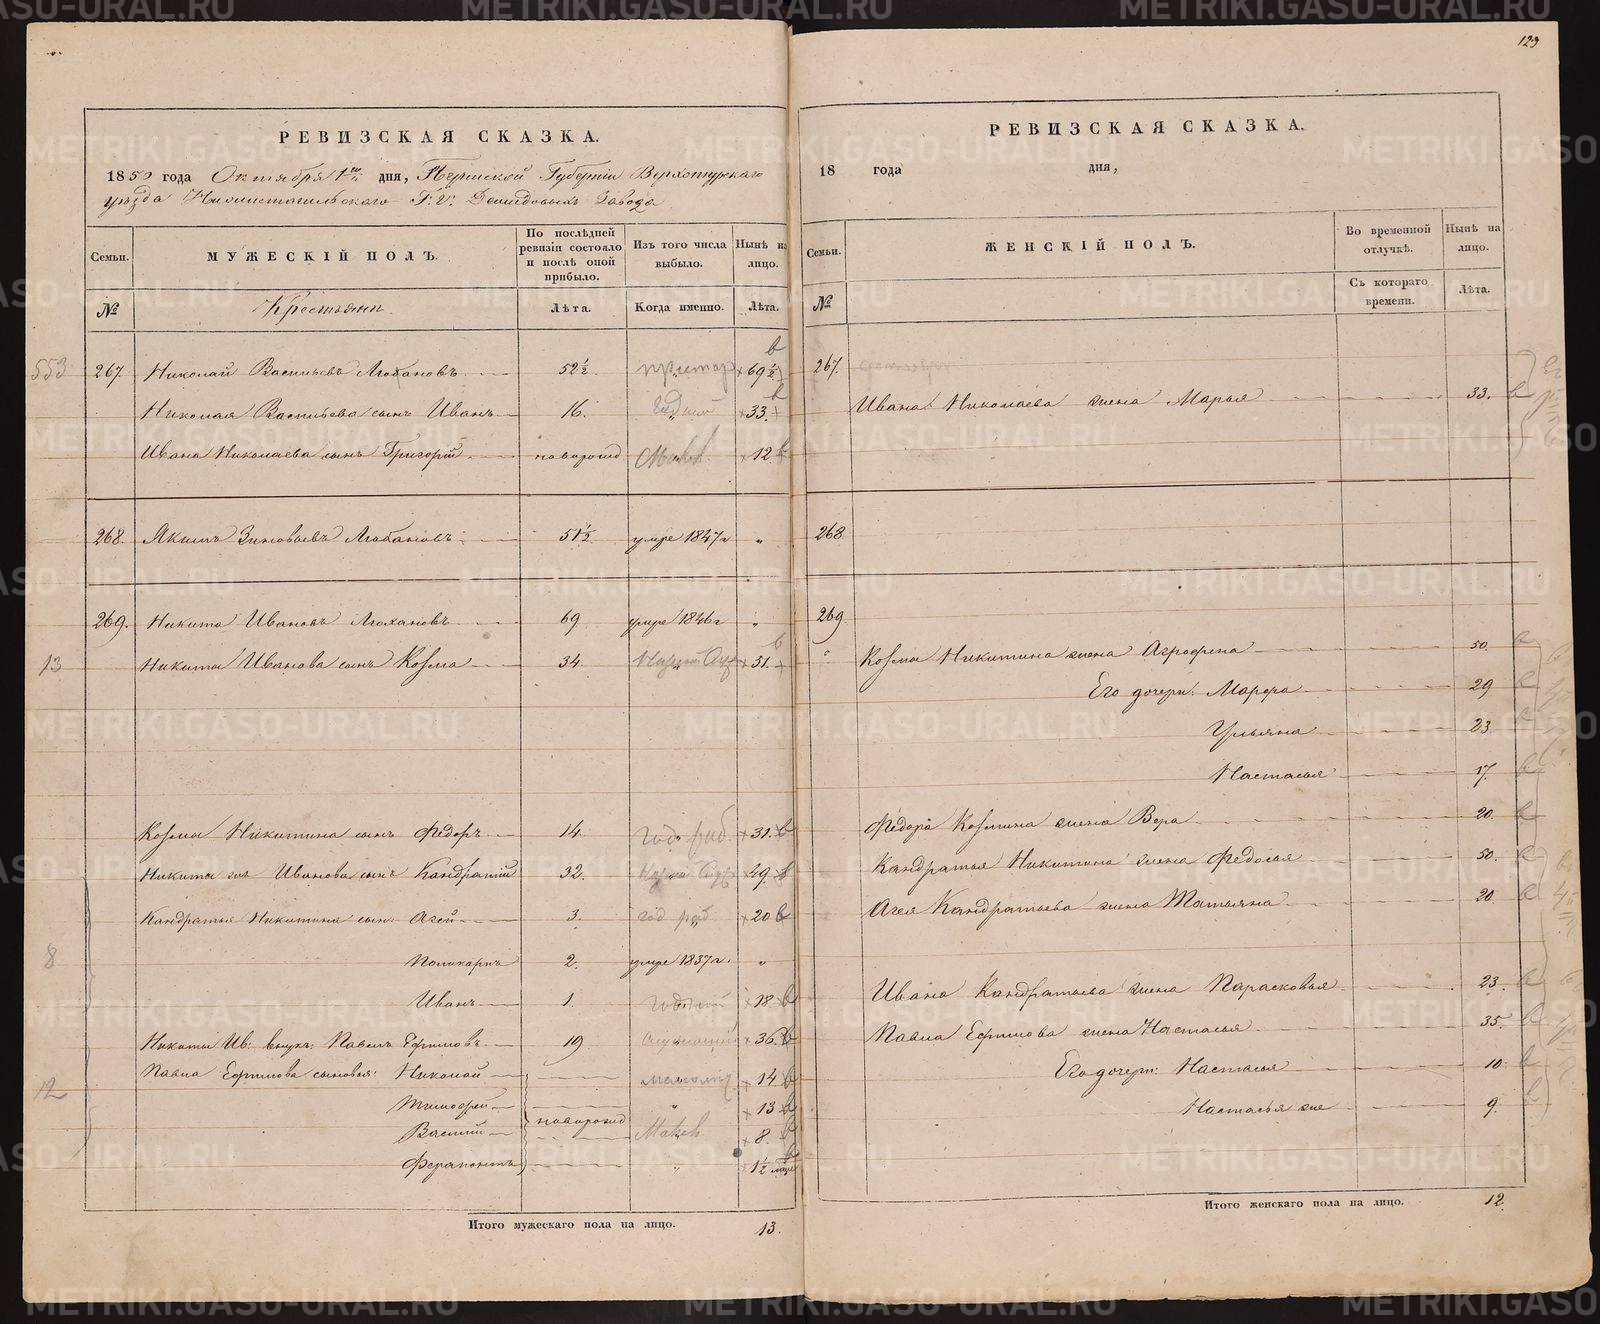 123
РЕВИЗСКАЯ СКАЗКА.
1850 года Октября 1го дня, Пермской Губернiи Верхотурскаго
уѣзда Нижнетагильскаго Г.г. Демидовыхъ Завода
Семьи.
МУЖЕСКIЙ ПОЛЪ.
По послѣдней ревизiи состояло и послѣ оной прибыло.
Изъ того числа выбыло.
Нынѣ на лицо.
№
Крестьяни
Лѣта.
Когда именно.
Лѣта.
553 267. Николай Васильевъ Лобановъ 52½ 69½
Николая Васильева сынъ Иванъ 16. 33.
Ивана Николаева сынъ Григорiй новорожд 12
268. Якимъ Зиновьевъ Лобановъ 51½ умре 1847г „
269. Никита Ивановъ Лохановъ 69 умре 1846г „
13 Никиты Иванова сынъ Козма 34. 51.
Козмы Никитина сынъ Федоръ 14. 31.
Никиты же Иванова сынъ Кандратiй 32. 49.
Кандратья Никитина сын: Агей 3. 20
8 Поликарпъ 2. умре 1837г. „
Иванъ 1. 18
Никиты Ив: внукъ: Павелъ Ефимовъ 19 36.
12 Павла Ефимова сыновья: Николай 14
Тимофей 13
новорожд
Василiй 8.
Ферапонтъ 1½
Итого мужескаго пола на лицо. 13.
РЕВИЗСКАЯ СКАЗКА.
18 года дня,
Семьи.
ЖЕНСКIЙ ПОЛЪ.
Во временной отлучкѣ.
Нынѣ на лицо.
№
Съ котораго времени.
Лѣта.
267.
Ивана Николаева жена Марья 33.
268
269
Козмы Никитина жена Аграфена 50.
Его дочери: Марфа 29
Ульяна 23
Настасья 17.
Федора Козмина жена Вера 20.
Кандратья Никитина жена Федосья 50.
Агея Кандратьева жена Татьяна 20.
Ивана Кандратьева жена Парасковья 23.
Павла Ефимова жена Настасья 35.
Его дочери: Настасья 10.
Настасья же 9.
Итого женскаго пола на лицо. 12.
METRIKI.GASO-URAL.RU